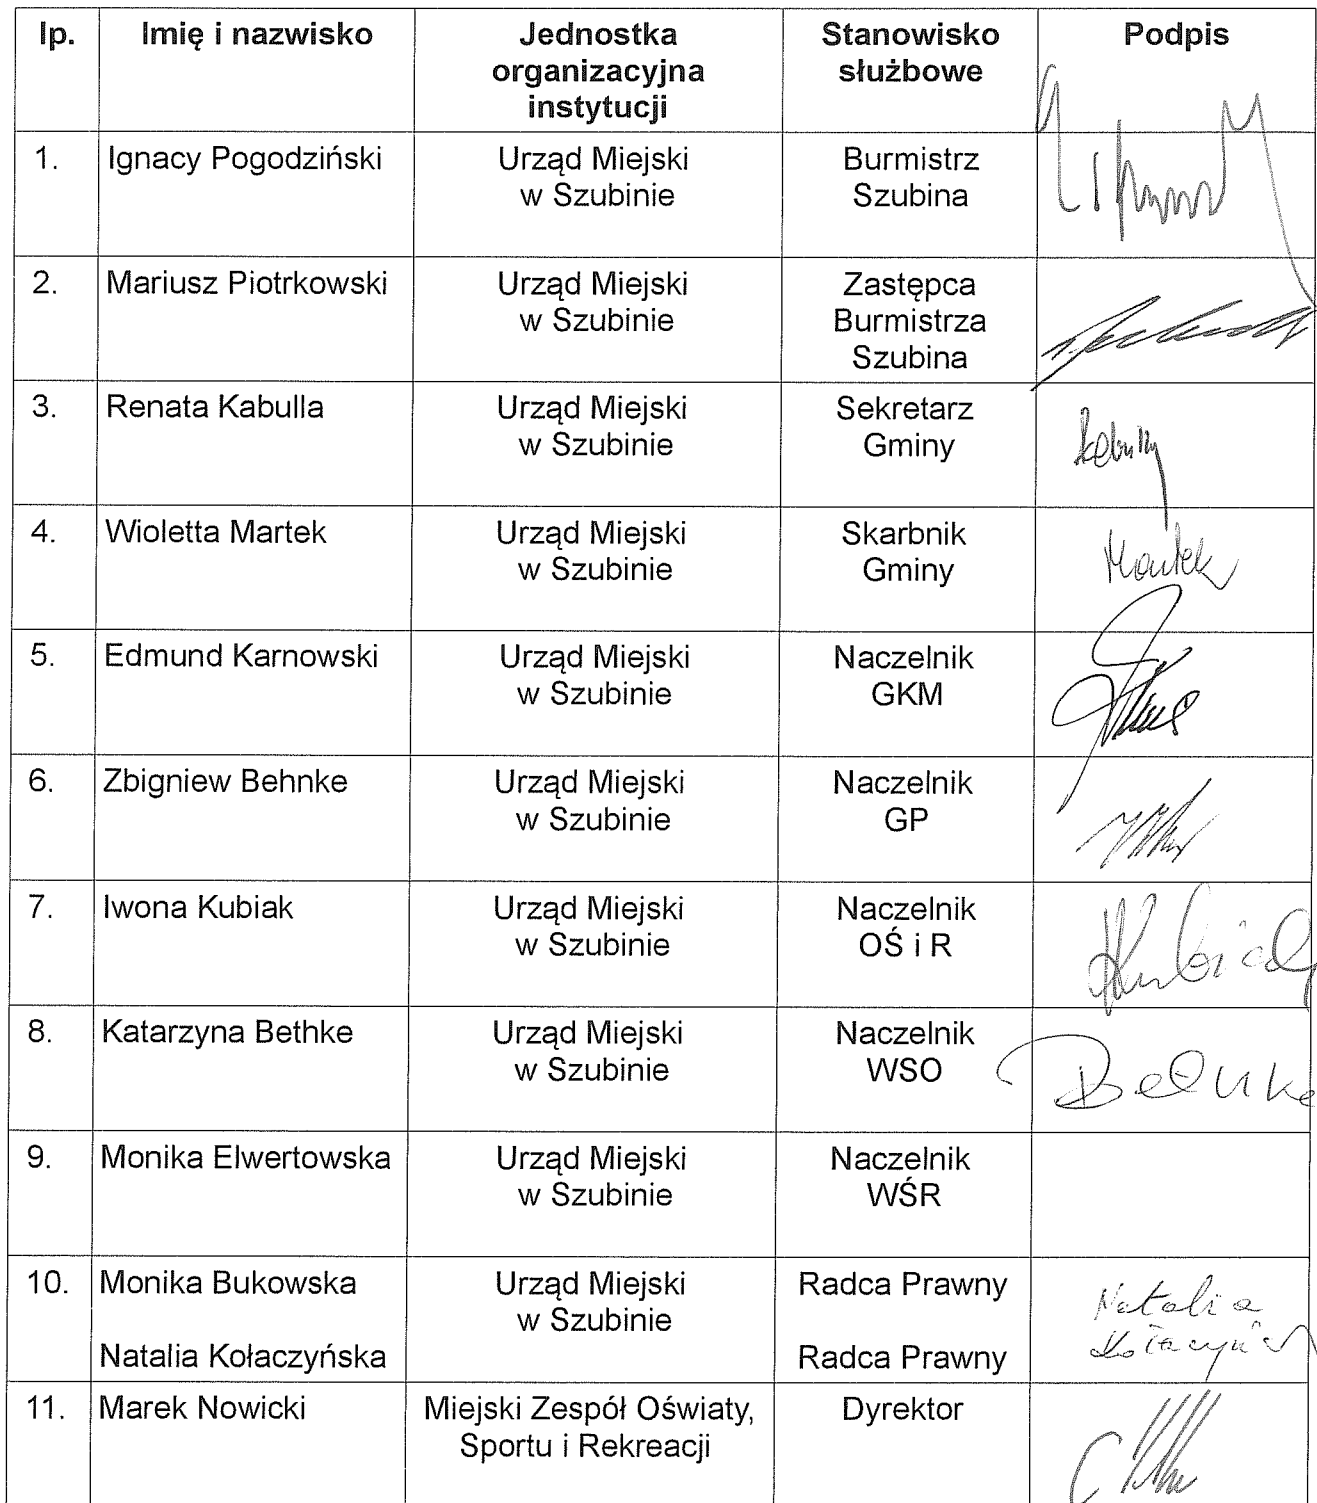 lp.
Imię i nazwisko
Jednostka
organizacyjna
instytucji
Stanowisko
służbowe
Podpis
1.
Ignacy Pogodziński
Urząd Miejski
w Szubinie
Burmistrz
Szubina
2.
Mariusz Piotrkowski
Urząd Miejski
w Szubinie
Zastępca
Burmistrza
Szubina
3.
Renata Kabulla
Urząd Miejski
w Szubinie
Sekretarz
Gminy
4.
Wioletta Martek
Urząd Miejski
w Szubinie
Skarbnik
Gminy
Martek
5.
Edmund Karnowski
Urząd Miejski
w Szubinie
Naczelnik
GKM
6.
Zbigniew Behnke
Urząd Miejski
w Szubinie
Naczelnik
GP
7.
Iwona Kubiak
Urząd Miejski
w Szubinie
Naczelnik
OŚ i R
8.
Katarzyna Bethke
Urząd Miejski
w Szubinie
Naczelnik
WSO
9.
Monika Elwertowska
Urząd Miejski
w Szubinie
Naczelnik
WŚR
10.
Monika Bukowska
Natalia Kołaczyńska
Urząd Miejski
w Szubinie
Radca Prawny
Radca Prawny
Natalia
11.
Marek Nowicki
Miejski Zespół Oświaty,
Sportu i Rekreacji
Dyrektor